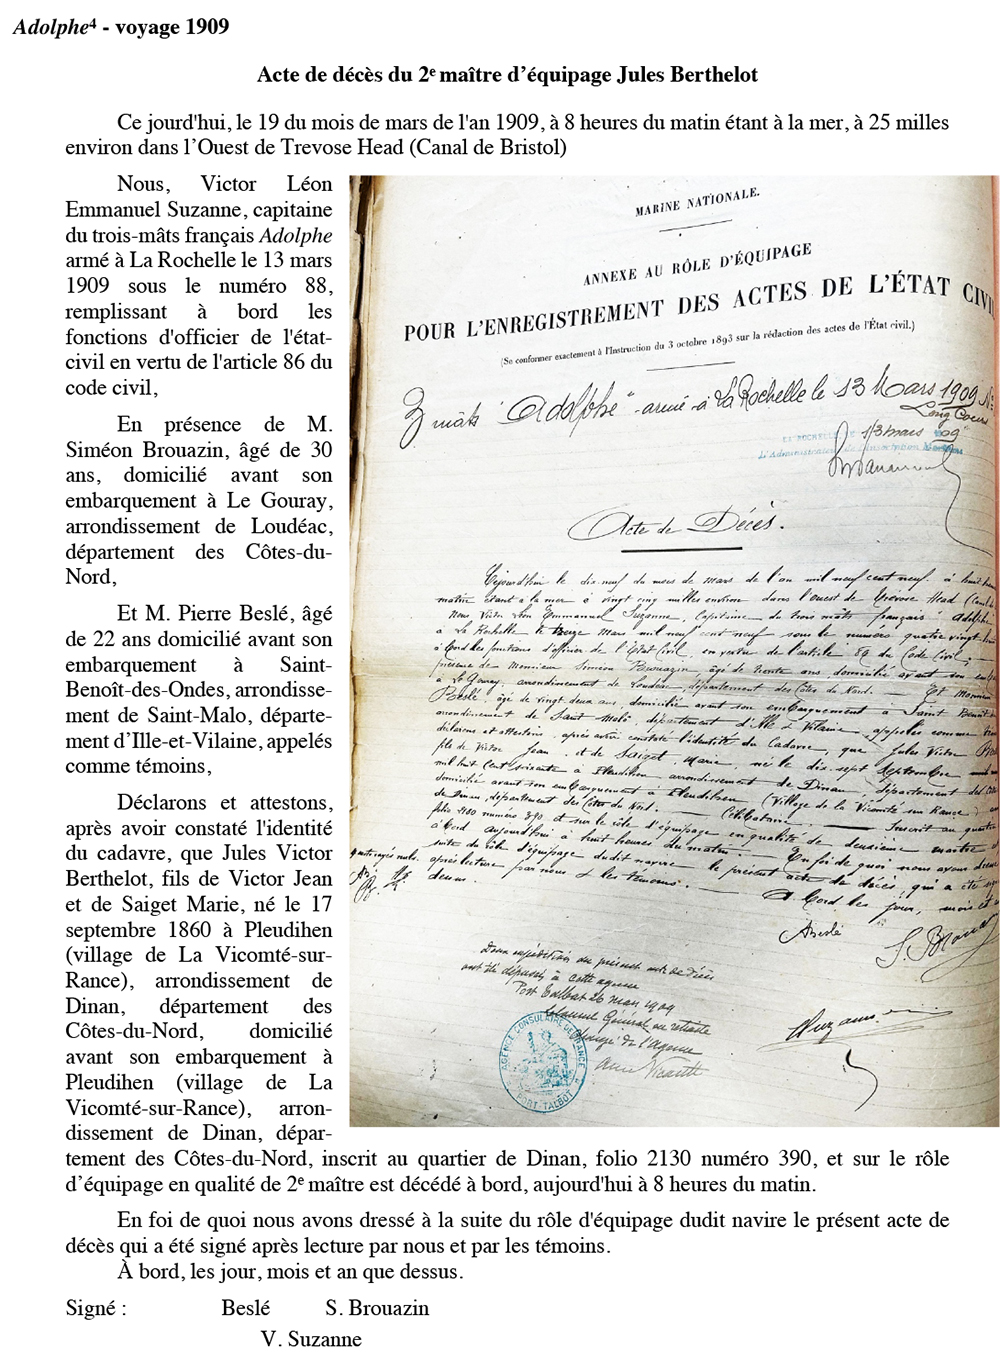 Adolphe⁴ - voyage 1909
Acte de décès du 2ᵉ maître d’équipage Jules Berthelot
Ce jourd'hui, le 19 du mois de mars de l'an 1909, à 8 heures du matin étant à la mer, à 25 milles
environ dans l’Ouest de Trevose Head (Canal de Bristol)
Nous, Victor Léon
Emmanuel Suzanne, capitaine
du trois-mâts français Adolphe
armé à La Rochelle le 13 mars
1909 sous le numéro 88,
remplissant à bord les
fonctions d'officier de l'état-
civil en vertu de l'article 86 du
code civil,
En présence de M.
Siméon Brouazin, âgé de 30
ans, domicilié avant son
embarquement à Le Gouray,
arrondissement de Loudéac,
département des Côtes-du-
Nord,
Et M. Pierre Beslé, âgé
de 22 ans domicilié avant son
embarquement à Saint-
Benoît-des-Ondes, arrondisse-
ment de Saint-Malo, départe-
ment d’Ille-et-Vilaine, appelés
comme témoins,
Déclarons et attestons,
après avoir constaté l'identité
du cadavre, que Jules Victor
Berthelot, fils de Victor Jean
et de Saiget Marie, né le 17
septembre 1860 à Pleudihen
(village de La Vicomté-sur-
Rance), arrondissement de
Dinan, département des
Côtes-du-Nord, domicilié
avant son embarquement à
Pleudihen (village de La
Vicomté-sur-Rance), arron-
dissement de Dinan, dépar-
tement des Côtes-du-Nord, inscrit au quartier de Dinan, folio 2130 numéro 390, et sur le rôle
d’équipage en qualité de 2ᵉ maître est décédé à bord, aujourd'hui à 8 heures du matin.
En foi de quoi nous avons dressé à la suite du rôle d'équipage dudit navire le présent acte de
décès qui a été signé après lecture par nous et par les témoins.
À bord, les jour, mois et an que dessus.
Signé : Beslé S. Brouazin
V. Suzanne
MARINE NATIONALE.
ANNEXE AU RÔLE D'ÉQUIPAGE
POUR L'ENREGISTREMENT DES ACTES DE L'ÉTAT CIVIL
(Se conformer exactement à l'Instruction du 3 octobre 1893 sur la rédaction des actes de l'État civil.)
3 mâts "Adolphe" armé à La Rochelle le 13 Mars 1909 N°
Long Cours
LA ROCHELLE 13 mars 09
Acte de Décès.
Cejourd'hui le dix-neuf du mois de mars de l'an mil neuf cent neuf à huit heures
matin étant à la mer à vingt cinq milles environ dans l'ouest de Trévose Head (Canal de
Nous Victor Léon Emmanuel Suzanne, Capitaine du trois mâts français Adolphe
à La Rochelle le treize Mars mil neuf cent neuf sous le numéro quatre vingt
à bord les fonctions d'officier de l'Etat Civil, en vertu de l'article 86 du Code Civil;
présence de Monsieur Siméon Brouazin âgé de trente ans, domicilié avant son
à Le Gouray, arrondissement de Loudéac, département des Côtes du Nord. Et Monsieur
Beslé, âgé de vingt deux ans, domicilié avant son embarquement à Saint Benoît
arrondissement de Saint Malo, département d'Ille & Vilaine, appelés comme
déclarons et attestons, après avoir constaté l'identité du Cadavre, que Jules Victor
fils de Victor Jean et de Saiget Marie, né le dix-sept Septembre mil
huit cent soixante à Pleudihen arrondissement de Dinan, département des
domicilié avant son embarquement à Pleudihen (Village de la Vicomté sur Rance)
de Dinan, département des Côtes du Nord. Célibataire. Inscrit au quartier
folio 2130 numéro 390 et sur le rôle d'équipage en qualité de deuxième maître
à bord aujourd'hui à huit heures du matin. En foi de quoi nous avons dressé
suite du rôle d'équipage dudit navire le présent acte de décès, qui a été signé
après lecture par nous & les témoins. A bord les jour, mois et
dessus.
Beslé
S. Broua
Suzanne
Deux expéditions du présent acte de décès
ont été déposées à cette agence
Port Talbot 26 mars 1909
de l'Agence
AGENCE CONSULAIRE DE FRANCE
PORT-TALBOT